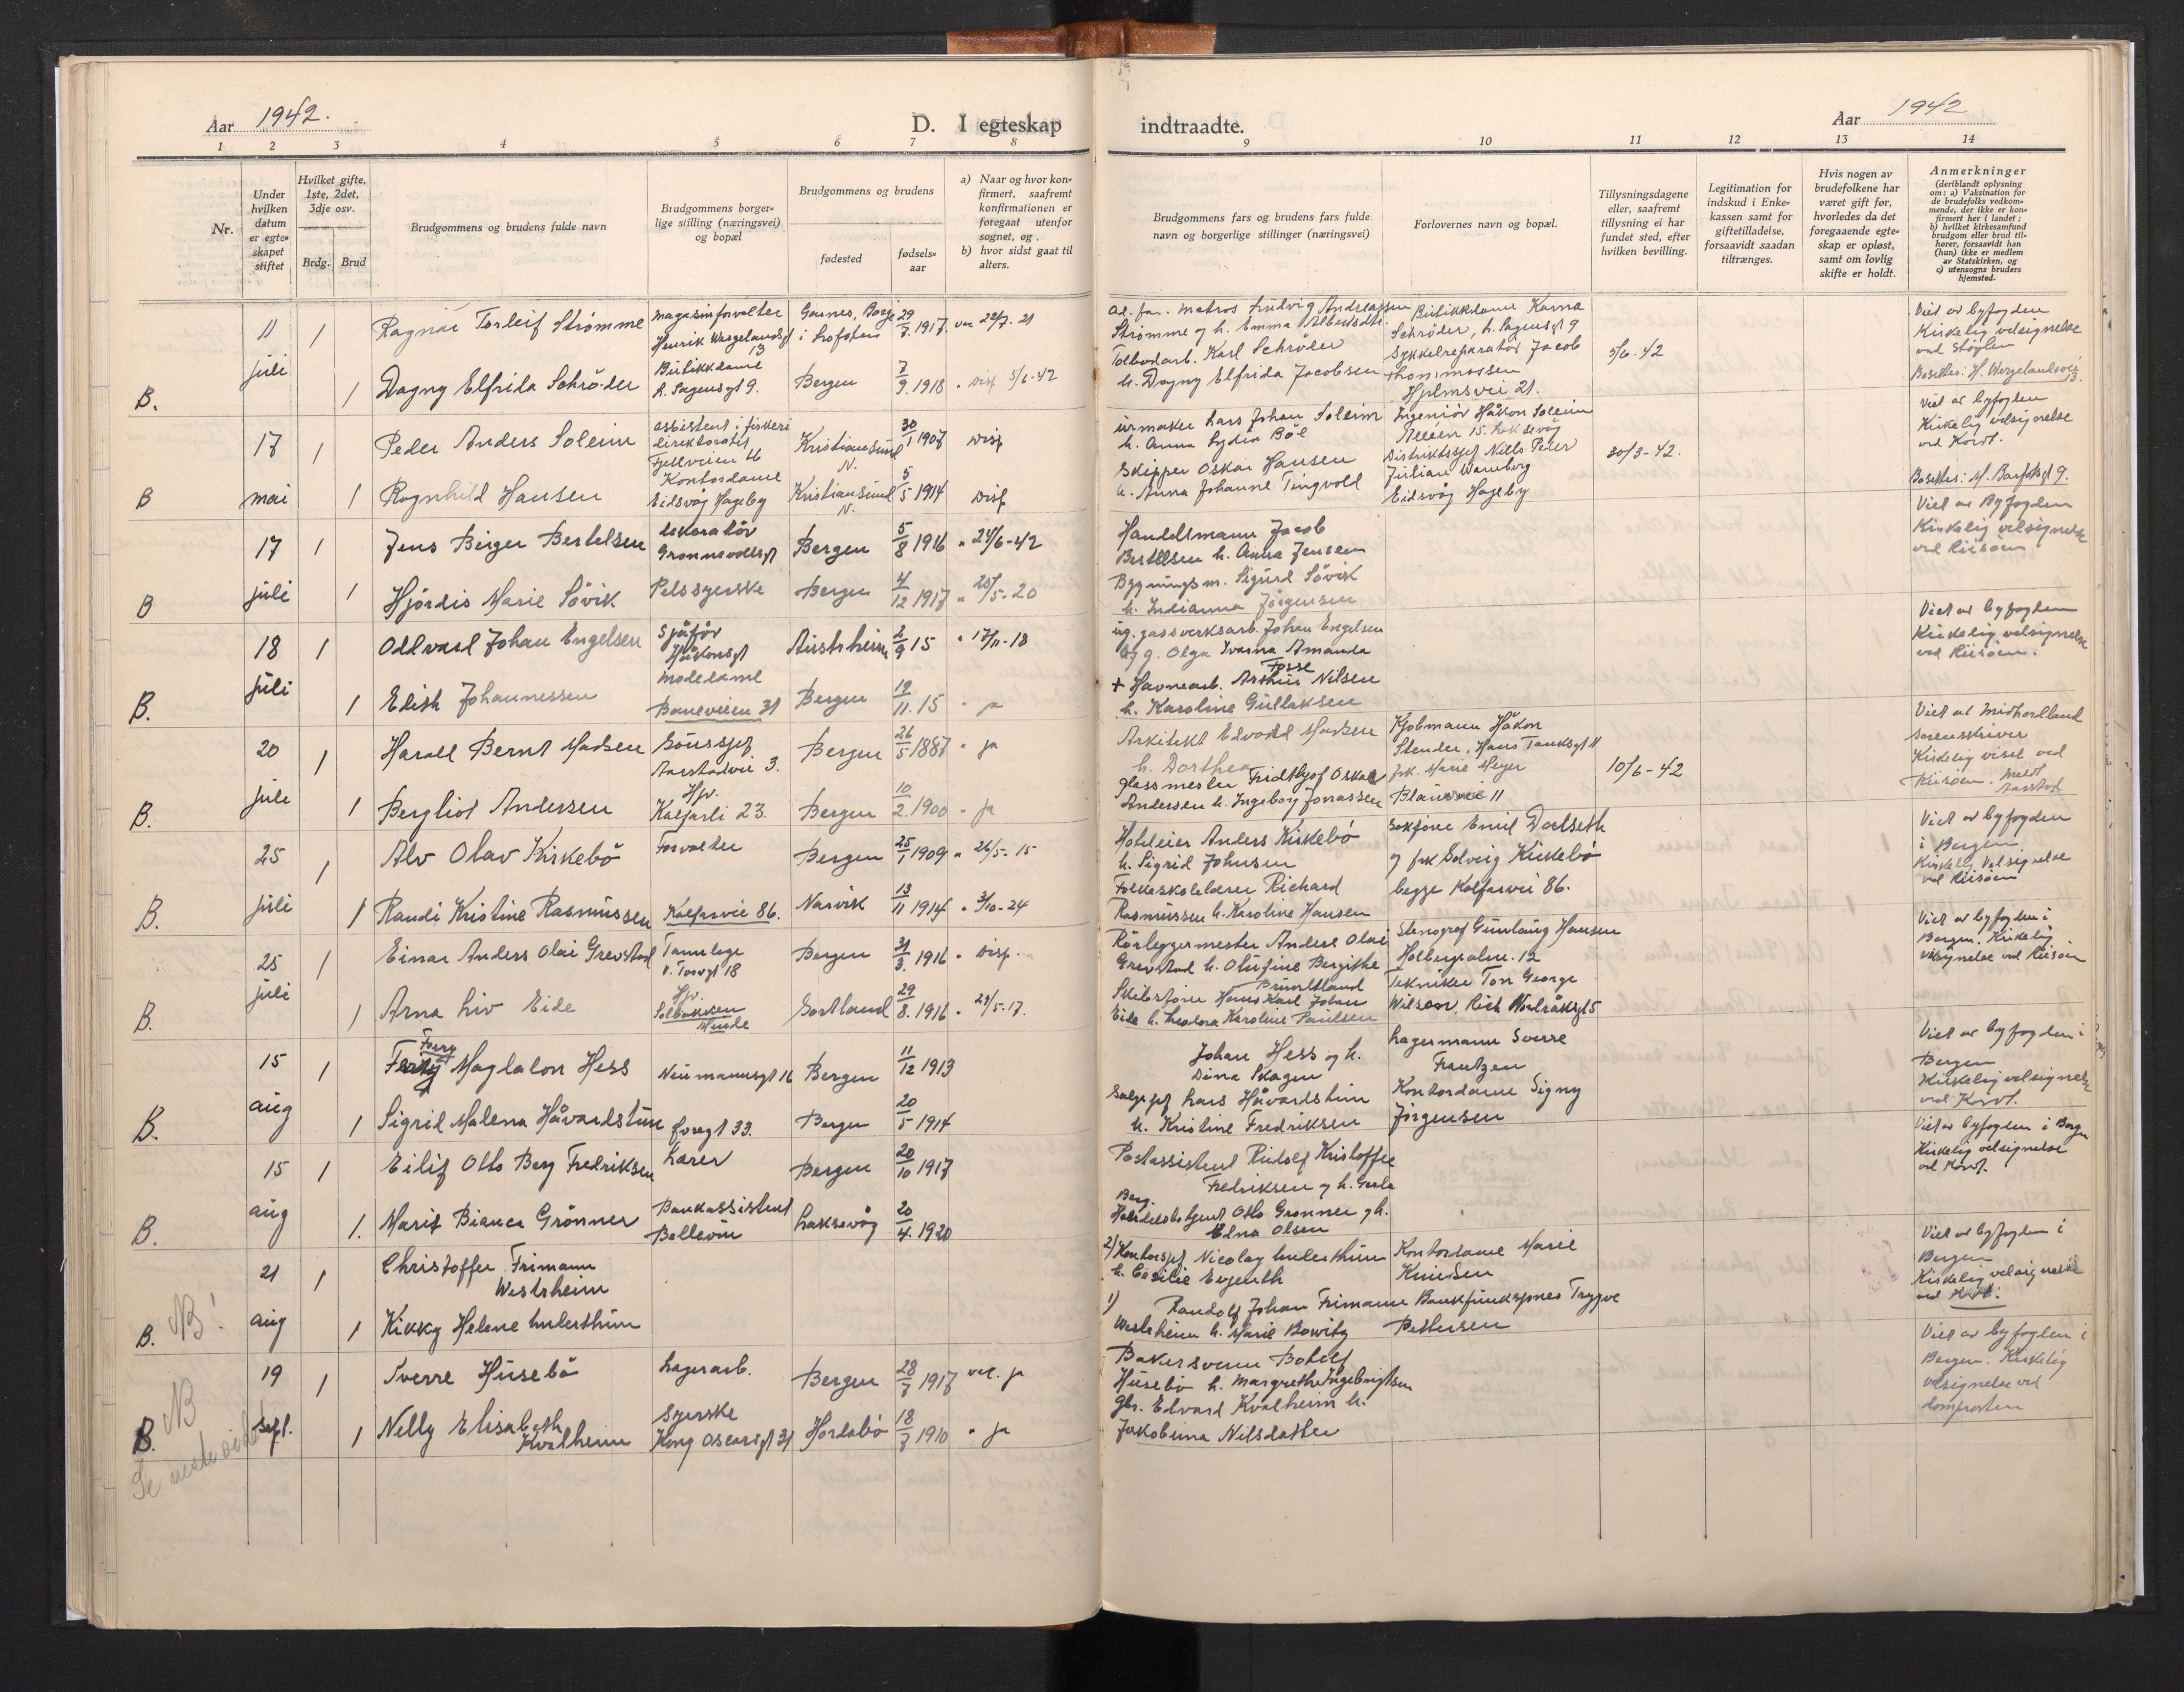 Aar 1942.
D. I egteskap
indtraadte.
Aar 1942
1 2 3 4 5 6 7 8
9 10 11 12 13 14
Nr.
Under hvilken datum er egteskapet stiftet
Hvilket gifte, 1ste, 2det, 3dje osv.
Brdg. Brud
Brudgommens og brudens fulde navn
Brudgommens borgerlige stilling (næringsvei) og bopæl
Brudgommens og brudens
fødested
fødselsaar
a) Naar og hvor konfirmert, saafremt konfirmationen er foregaat utenfor sognet, og
b) hvor sidst gaat til alters.
Brudgommens fars og brudens fars fulde navn og borgerlige stillinger (næringsvei)
Forlovernes navn og bopæl.
Tillysningsdagene eller, saafremt tillysning ei har fundet sted, efter hvilken bevilling.
Legitimation for indskud i Enkekassen samt for giftetilladelse, forsaavidt saadan tiltrænges.
Hvis nogen av brudefolkene har været gift før, hvorledes da det foregaaende egteskap er opløst, samt om lovlig skifte er holdt.
Anmerkninger
(deriblandt oplysning om: a) Vaksination for de brudefolks vedkommende, der ikke er konfirmert her i landet; b) hvilket kirkesamfund brudgom eller brud tilhører, forsaavidt han (hun) ikke er medlem av Statskirken, og c) utensogns bruders hjemsted.
11 juli 1 Ragnar Torleif Strømme
Magasinforvalter
Henrik Wergelandsgt 13
i Lofoten
29/7. 1917
Strømme og h. Emma
Butikkdame Karna
Schrøder, L. Sagensgt 9
Vied av byfogden
Kirkelig velsignelse
B. 1 Dagny Elfrida Schrøder
Butikkdame
L. Sagensgt 9.
Bergen 7/9. 1918 " Disp 5/6-42
Tolbodarb. Karl Schrøder
h. Dagny Elfrida Jacobsen
Sykkelreparatør Jacob
Thommassen
Hjelmsvei 21.
5/6-42
Bosettes: H. Wergelandsvei 13.
17 mai 1 Peder Anders Soleim
assistent i fiskeri
direktoratet
Kristiansund N. 30/1 1907 Disp
urmaker Lars Johan Soleim
h. Anna Lydia Böe
Ingeniør Håkon Soleim
Alleen 15. Laksevåg
Vied av byfogden
Kirkelig velsignelse
B 1 Ragnhild Hansen
Kontordame
Eidsvåg Hageby
Kristiansund N. 5/5 1914 Disp
Skipper Oskar Hansen
h. Anna Johanne Tingvold
Distriktssjef Nills Peder
Julian Warnberg
Eidsvåg Hageby
30/3-42.
17 juli 1 Jens Birger Bertelsen
dekoratør
Bergen 5/8 1916 " 24/6-42
Handelsmann Jacob
Bertelsen h. Anna Jensen
Vied av Byfogden
Kirkelig velsignelse
ved Riisøen
B 1 Hjørdis Marie Søvik
Pelssyerske
Bergen 4/12 1917 " 20/5-20
Bygningsm. Sigurd Søvik
h. Indianna Jørgensen
18 juli 1 Oddvard Johan Engelsen
Sjåfør
Håkonsgt
Austrheim 2/9 15 " 17/11-18
ug. gassverksarb. Johan Engelsen
og g. Olga Ivarna Amanda
Fosse
Vied av byfogden
Kirkelig velsignelse
ved Riisøen.
B. 1 Edith Johannessen
Motedame
Baneveien 31
Bergen 19/11. 15 " ja
+ Havnearb. Arthur Nilsen
h. Karoline Gullaksen
20 juli 1 Harald Bernt Madsen
Aarstadvei 3.
Bergen 26/5 1887 " ja
Arkitekt Edvard Madsen
h. Dorthea
Kjøbmann Håkon
Stender, Hans Tanksgt 11
10/6-42
Vied av Midhordland
Sorenskriver
Kirkelig viet ved
Riisøen. Meldt
Aarstad
B. 1 Bergliot Andersen
Hjv.
Kalfarli 23.
Bergen 10/2. 1900 " ja
glassmester Fridthjof Oskar
Andersen h. Ingeborg Jonassen
frk. Marie Meyer
Blauwvei 11
25 juli 1 Alv Olav Kirkebø
Forvalter
Bergen 25/1 1909 " 26/5-15
Hoteleier Anders Kirkebø
h. Sigrid Johnsen
Sakfører Emil Dalseth
og frk Solveig Kirkebø
begge Kalfarvei 86.
Vied av byfogden
i Bergen
Kirkelig Velsignelse
ved Riisøen
B. 1 Randi Kristine Rasmussen
Kalfarvei 86.
Narvik 13/11 1914 " 3/10-24
Folkeskolelærer Richard
Rasmussen h. Karoline Hansen
25 juli 1 Einar Anders Olai Grevstad
Tannlege
V. Torvgt 18
Bergen 31/3. 1916 " Disp.
Rørleggermester Anders Olai
Grevstad h. Olufine Bergithe
Bruntland
Stenograf Gunlaug Hansen
Holbergsalm. 12
Vied av byfogden i
Bergen. Kirkelig
velsignelse ved Riisøen
B. 1 Arna Liv Eide
Hjv.
Solbakken
Minde
Sortland 29/8. 1916 " 23/5-17.
Skibsfører Hans Karl Johan
Eide h. Theodora Karoline Paulsen
Tekniker Ton George
Wilson, Rich Nordråksgt 5
15 aug 1 Ferry Magdalon Hess
Neumannsgt 16 Bergen 11/12 1913
Johan Hess og h.
Dina Skagen
Lagermann Sverre
Frantzen
Vied av byfogden i
Bergen
Kirkelig velsignelse
B. 1 Sigrid Malena Håvardstun
Foregt 33. Bergen 20/5 1914
Salgssjef Lars Håvardstun
h. Kristine Fredriksen
Kontordame Signy
Jørgensen
15 aug 1 Eilif Otto Berg Fredriksen
Lærer
Bergen 20/10 1917
Postassistent Rudolf Kristoffer
Fredriksen og h. Gerda
Berg.
Vied av byfogden i Bergen
Kirkelig velsignelse
B. 1. Marit Bianca Grønner
Bankassistent
Bellevue
Laksevåg 20/4. 1920
Handelsbetjent Otto Grønner og h.
Elna Olsen
21 aug 1 Christoffer Frimann
Westrheim
2) Kontorsjef Nicolay Lulesthun
h. Cecilie Evgenth
Kontordame Marie
Knudsen
Vied av byfogden i
Bergen
Kirkelig velsignelse
NB!
B. 1 Kikky Helene Lulesthun
1) Randolf Johan Frimann
Westrheim h. Marie Bowitz
Bankfunksjonær Trygve
Pettersen
19 sept. 1 Sverre Husebø
Lagerarb.
Bergen 28/7 1917 vel. ja
Bakersvenn Botolf
Husebø h. Margrethe Ingebrigtsen
Vied av byfogden i
Bergen. Kirkelig
velsignelse ved
domprosten
NB
B. 1 Nelly Elisabeth
Kvalheim
Syerske
Kong Oscarsgt 31
Hordabø 18/7 1910 " ja
gbr. Edvard Kvalheim h.
Jakobina Nilsdatter
Se neste side